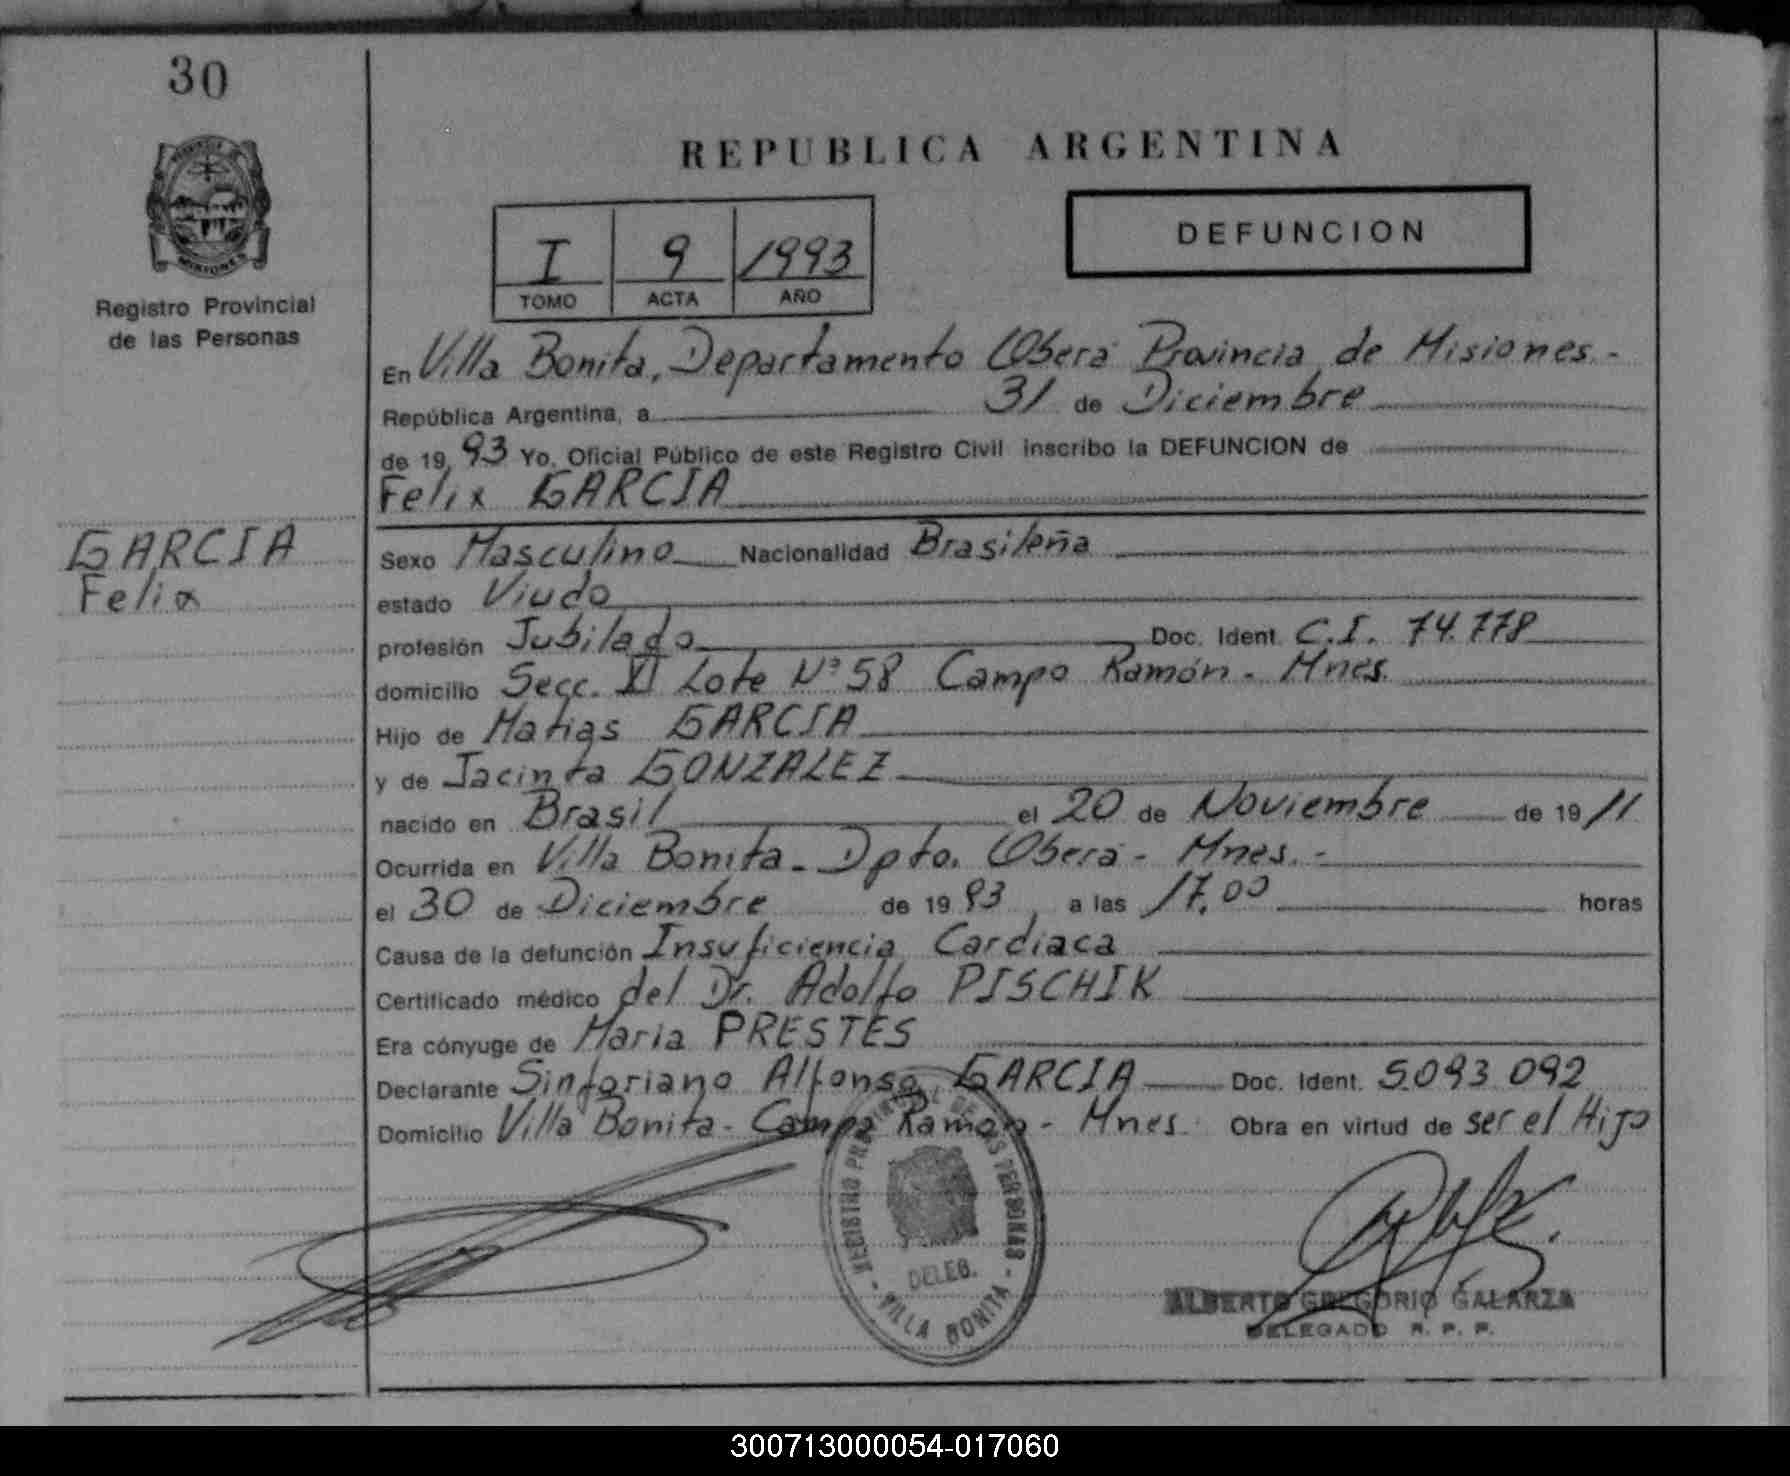 30
MISIONES
Registro Provincial
de las Personas
GARCIA
Felix
REPUBLICA ARGENTINA
I 9 1993
TOMO ACTA AÑO
DEFUNCION
En Villa Bonita, Departamento Oberá Provincia de Misiones.-
República Argentina, a 31 de Diciembre
de 1993 Yo, Oficial Público de este Registro Civil inscribo la DEFUNCION de
Felix GARCIA
Sexo Masculino Nacionalidad Brasileña
estado Viudo
profesión Jubilado Doc. Ident. C.I. 74.778
domicilio Secc. XI Lote Nº 58 Campo Ramón - Mnes.
Hijo de Matias GARCIA
y de Jacinta GONZALEZ
nacido en Brasil el 20 de Noviembre de 1911
Ocurrida en Villa Bonita - Dpto. Oberá - Mnes. -
el 30 de Diciembre de 1993, a las 17,00 horas
Causa de la defunción Insuficiencia Cardiaca
Certificado médico del Dr. Adolfo PISCHIK
Era cónyuge de Maria PRESTES
Declarante Sinforiano Alfonso GARCIA Doc. Ident. 5.093 092
Domicilio Villa Bonita - Campo Ramon - Mnes. Obra en virtud de ser el Hijo
REGISTRO PROVINCIAL DE LAS PERSONAS
DELEG.
- VILLA BONITA -
ALBERTO GREGORIO GALARZA
DELEGADO R. P. P.
300713000054-017060